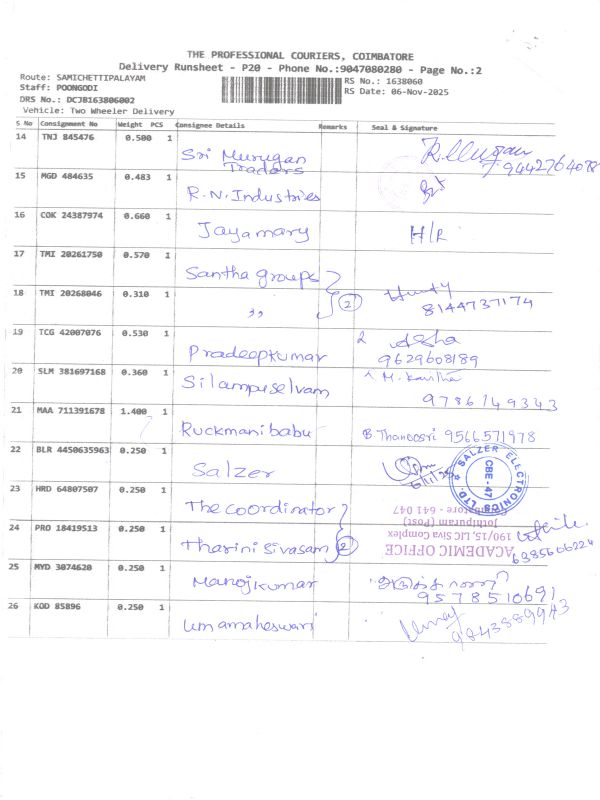 THE PROFESSIONAL COURIERS, COIMBATORE
Delivery Runsheet - P20 - Phone No.:9047080280 - Page No.:2
Route: SAMICHETTIPALAYAM
Staff: POONGODI
DRS No.: DCJB163806002
Vehicle: Two Wheeler Delivery
RS No.: 1638060
RS Date: 06-Nov-2025
S No Consignment No Weight PCS Consignee Details Remarks Seal & Signature
14 TNJ 845476 0.500 1 Sri Murugan Traders R. Murugan 9442764078
15 MGD 484635 0.483 1 R.N. Industries
16 COK 24387974 0.660 1 Jayamary H/R
17 TMI 20261750 0.570 1 Santha groups
18 TMI 20268046 0.310 1 ,, 2 8144737174
19 TCG 42007076 0.530 1 Pradeepkumar Asha 9629608189
20 SLM 381697168 0.360 1 Silampuselvam M. Kavitha 9786149343
21 MAA 711391678 1.400 1 Ruckmanibabu B. Thaneosri 9566571978
22 BLR 4450635963 0.250 1 Salzer
SALZER ELECTRONICS LTD. CBE-47
23 HRD 64807507 0.250 1 The coordinator
24 PRO 18419513 0.250 1 Tharini sivasam 2 6385606224
ACADEMIC OFFICE
190/15, UC Siva Complex
Jothipuram (Post)
Coimbatore - 641 047
25 MYD 3074620 0.250 1 Manojkumar 9578510691
26 KOD 85896 0.250 1 Umamaheswari Umay 9843889943